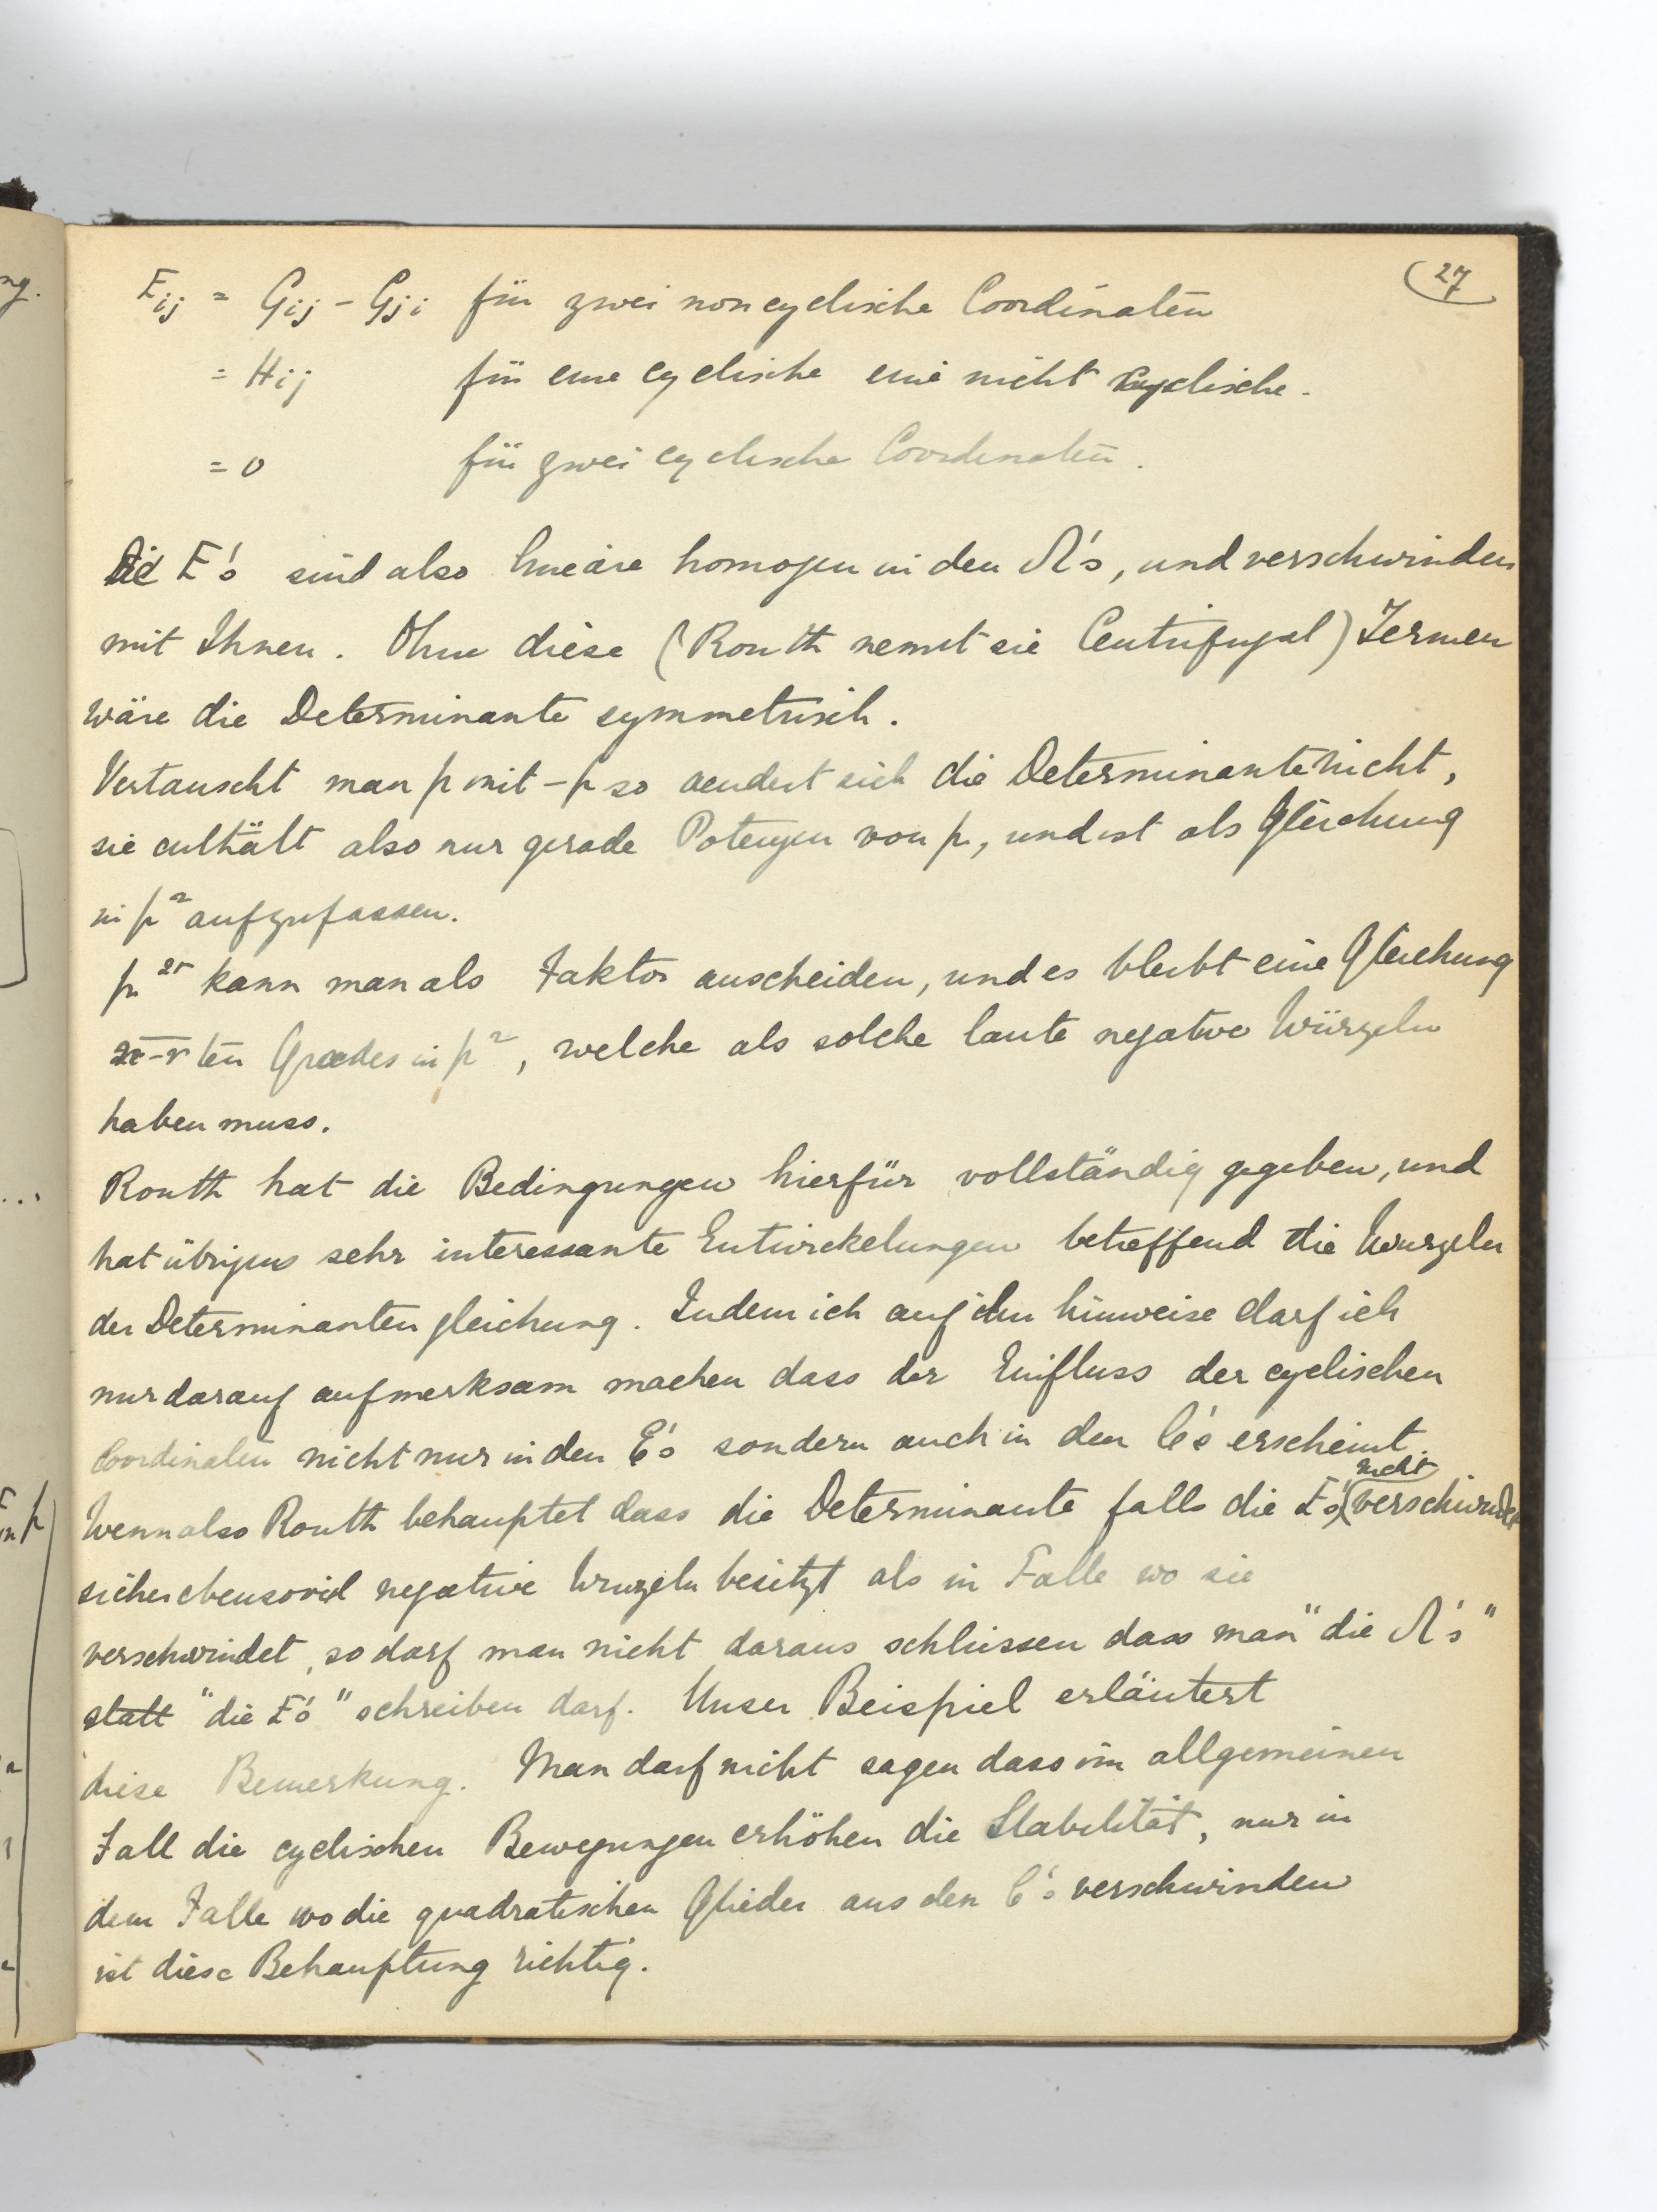 27
E_ij = G_ij - G_ji für zwei noncyclische Coordinaten
= H_ij für eine cyclische eine nicht cyclische.
= 0 für zwei cyclische Coordinaten.
Die E's sind also lineäre homogen in den Λ's, und verschwinden
mit Ihnen. Ohne diese (Routh nennt sie Centrifugal) Termen
wäre die Determinante symmetrisch.
Vertauscht man p mit -p so aendert sich die Determinante nicht,
sie enthält also nur gerade Potenzen von p, und ist als Gleichung
in p² aufzufassen.
p^2r kann man als Faktor auscheiden, und es bleibt eine Gleichung
-r ten Grades in p², welche als solche laute negative Würzeln
haben muss.
Routh hat die Bedingungen hierfür vollständig gegeben, und
hat übrigens sehr interessante Entwickelungen betreffend die Wurzeln
der Determinantengleichung. Indem ich auf ihn hinweise darf ich
nur darauf aufmerksam machen dass der Einfluss der cyclischen
Coordinaten nicht nur in den E's sondern auch in den C's erscheint.
Wenn also Routh behauptet dass die Determinante falls die E's nicht verschwinden
sicher ebensoviel negative Wurzeln besitzt als in Falle wo sie
verschwindet, so darf man nicht daraus schliessen dass man "die Λ's"
statt "die E's" schreiben darf. Unser Beispiel erläutert
diese Bemerkung. Man darf nicht sagen dass im allgemeinen
Fall die cyclischen Bewegungen erhöhen die Stabilität, nur in
dem Falle wo die quadratischen Glieder aus den C's verschwinden
ist diese Behauptung richtig.